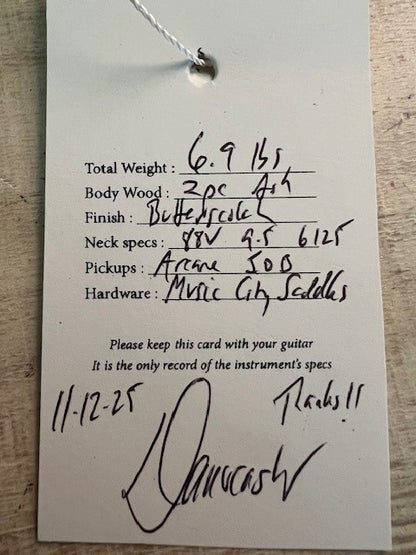 Total Weight : 6.9 lbs
Body Wood : 2pc Ash
Finish : Butterscotch
Neck specs : 88V 9.5 6125
Pickups : Arcane 50B
Hardware : Music City Saddles
Please keep this card with your guitar
It is the only record of the instrument's specs
11-12-25 Thanks!!